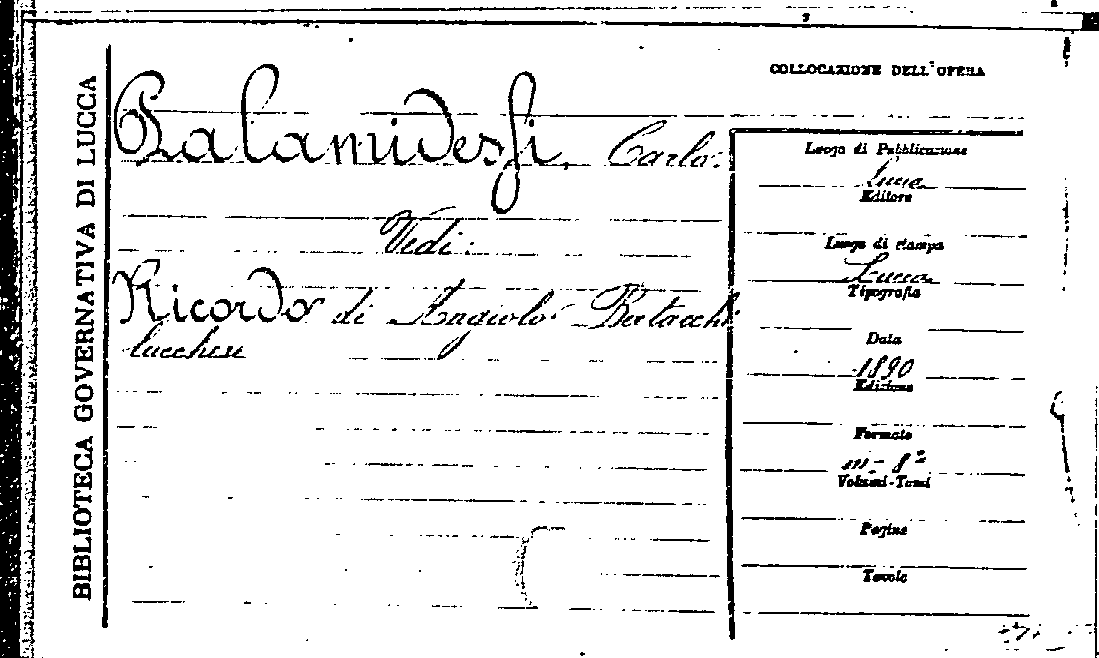 BIBLIOTECA GOVERNATIVA DI LUCCA
Palamidessi, Carlo.
Vedi:
Ricordo di Angiolo Bertacchi
lucchese
COLLOCAZIONE DELL'OPERA
Luogo di Pubblicazione
Lucca
Editore
Luogo di stampa
Lucca
Tipografia
Data
1890
Edizione
Formato
in-8°
Volumi-Tomi
Pagine
Tavole